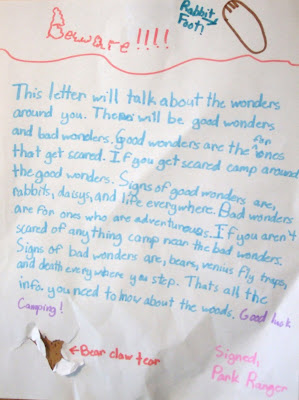 Beware!!!!
Rabbit
Foot!
This letter will talk about the wonders
around you. There will be good wonders
and bad wonders. Good wonders are the for ones
that get scared. If you get scared camp around
the good wonders. Signs of good wonders are,
rabbits, daisys, and life everywhere. Bad wonders
are for ones who are adventurous. If you aren't
scared of anything camp near the bad wonders.
Signs of bad wonders are, bears, venius fly traps,
and death everywhere you step. Thats all the
info you need to know about the woods. Good luck
Camping!
←Bear claw tear
Signed,
Park Ranger